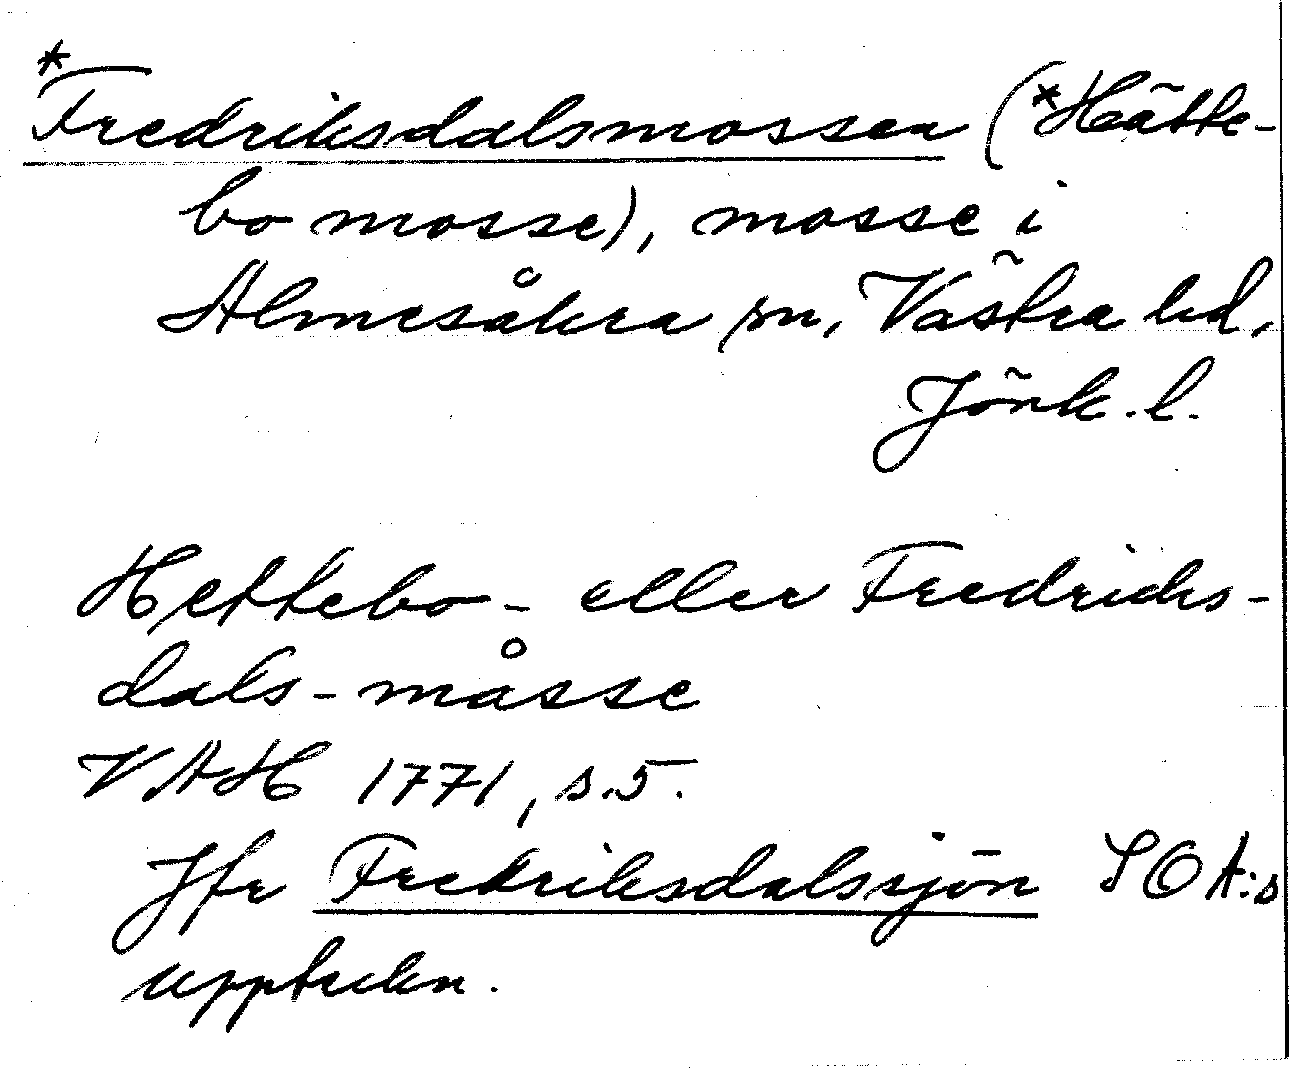 *Fredriksdalsmossen (*Hätte-
bo mosse), mosse i
Almesåkra sn, Västra hd,
Jönk. l.
Hettebo- eller Fredrichs-
dals-måsse
VAH 1771, s. 5.
Jfr Fredriksdalssjön SOA:s
uppteckn.